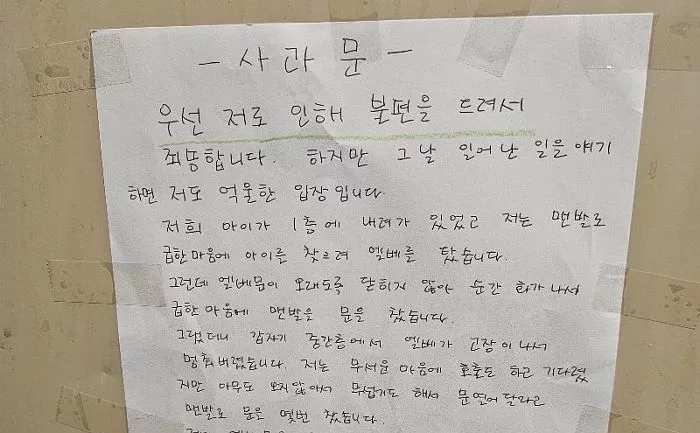 - 사 과 문 -
우선 저로 인해 불편을 드려서
죄송합니다. 하지만 그날 일어난 일을 얘기
하면 저도 억울한 입장입니다.
저희 아이가 1층에 내려가 있었고 저는 맨발로
급한 마음에 아이를 찾으려 엘베를 탔습니다.
그런데 엘베문이 오래도록 닫히지 않아 순간 화가 나서
급한 마음에 맨발을 문을 찼습니다.
그랬더니 갑자기 중간층에서 엘베가 고장이 나서
멈춰버렸습니다. 저는 무서운 마음에 호출도 하고 기다렸
지만 아무도 오지않아서 무섭기도 해서 문열어 달라고
맨발로 문을 몇번 찼습니다.